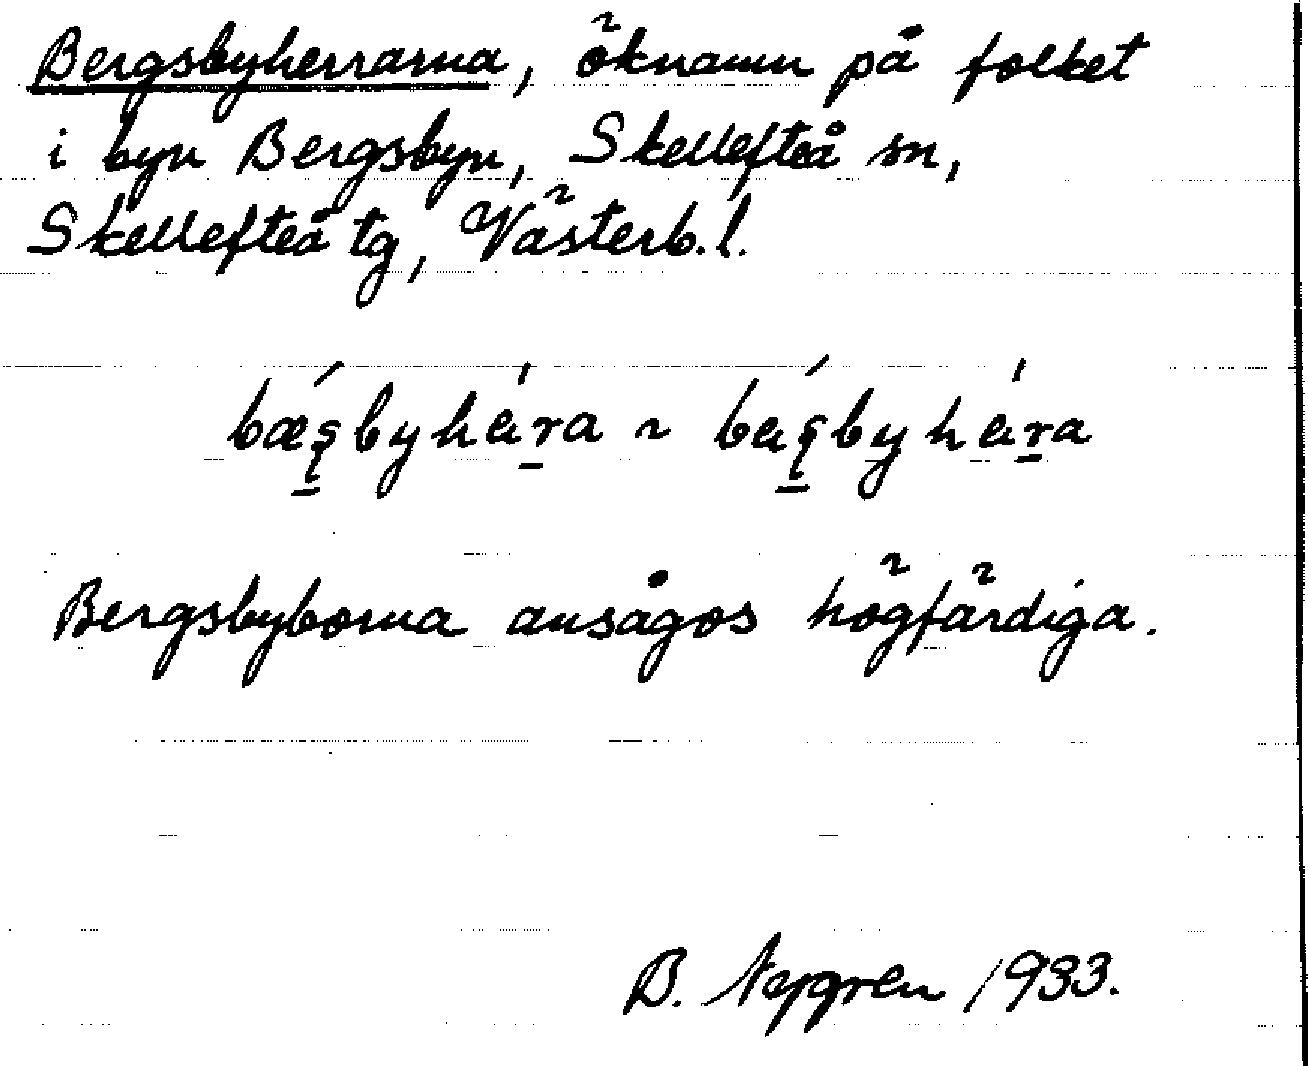 Bergsbyherrarna, öknamn på folket
i byn Bergsbyn, Skellefteå sn,
Skellefteå tg, Västerb. l.
Bergsbyborna ansågos högfärdiga.
B. Nygren 1933.